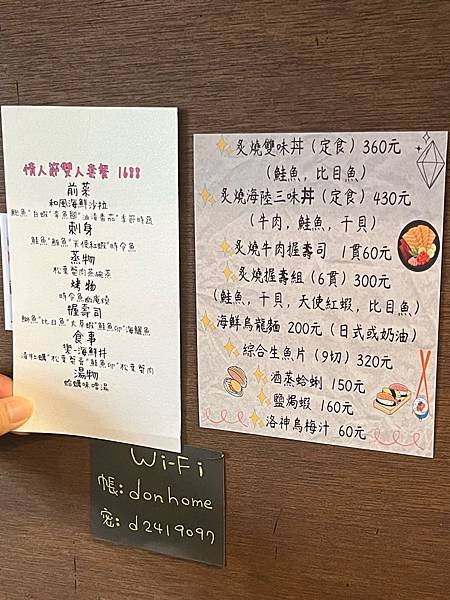 情人節雙人套餐 1688
前菜
和風海鮮沙拉
鮑魚"白蝦"章魚腳"油漬番茄"季節時蔬
刺身
鮭魚"鮪魚"天使紅蝦"時令魚
蒸物
松葉蟹肉茶碗蒸
烤物
時令魚幽庵燒
握壽司
鮪魚"比目魚"大厚蝦"鮭魚卵"海鱺魚
食事
樂-海鮮丼
漬牡蠣"松葉蟹膏"鮭魚卵"松葉蟹肉
湯物
蛤蠣味噌湯
炙燒雙味丼(定食)360元
(鮭魚, 比目魚)
炙燒海陸三味丼(定食)430元
(牛肉, 鮭魚, 干貝)
炙燒牛肉握壽司 1貫60元
炙燒握壽組(6貫)300元
(鮭魚, 干貝, 天使紅蝦, 比目魚)
海鮮烏龍麵 200元(日式或奶油)
綜合生魚片(9切)320元
酒蒸蛤蜊 150元
鹽焗蝦 160元
洛神烏梅汁 60元
Wi-Fi
帳:donhome
密:d2419097